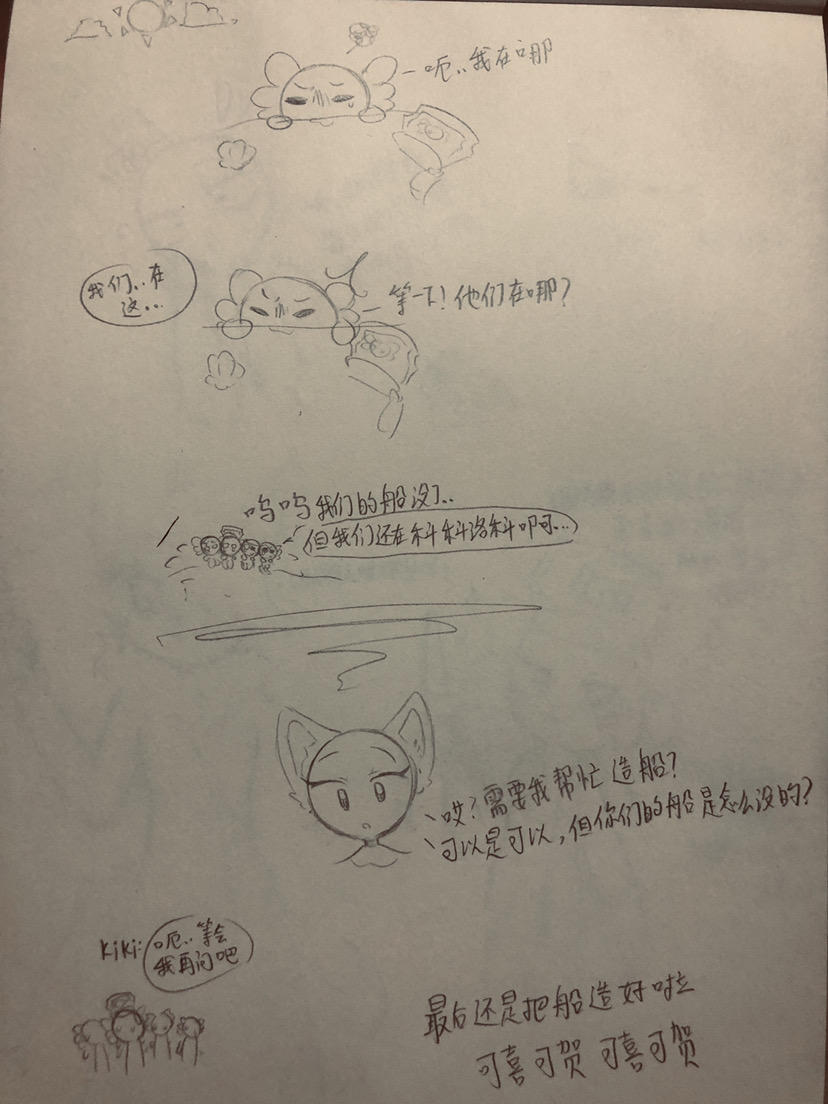 呃..我在哪
我们..在
这...
等一下！他们在哪？
呜呜我们的船没了..
但我们还在科科洛科叩可...
哎？需要我帮忙造船？
可以是可以，但你们的船是怎么没的？
KiKi:
呃..等会
我再问吧
最后还是把船造好啦
可喜可贺 可喜可贺